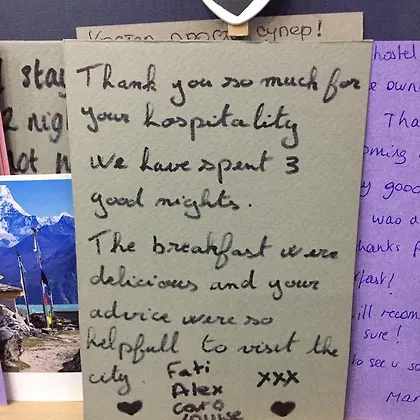 хостел просто супер!
Thank you so much for
your hospitality
we have spent 3
good nights.
The breakfast were
delicious and your
advice were so
helpfull to visit the
city.
Fati
Alex
xxx
Caro
Louise
stay
2 nig
not
hostel
e own
Tha
oming
y good
was a
hanks f
fast!
ill recom
sure!
to see u so
Mar